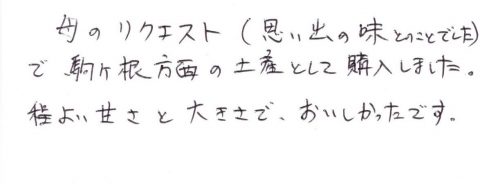 母のリクエスト(思い出の味とのことでした)
で駒ヶ根方面の土産として購入しました。
程よい甘さと大きさで、おいしかったです。